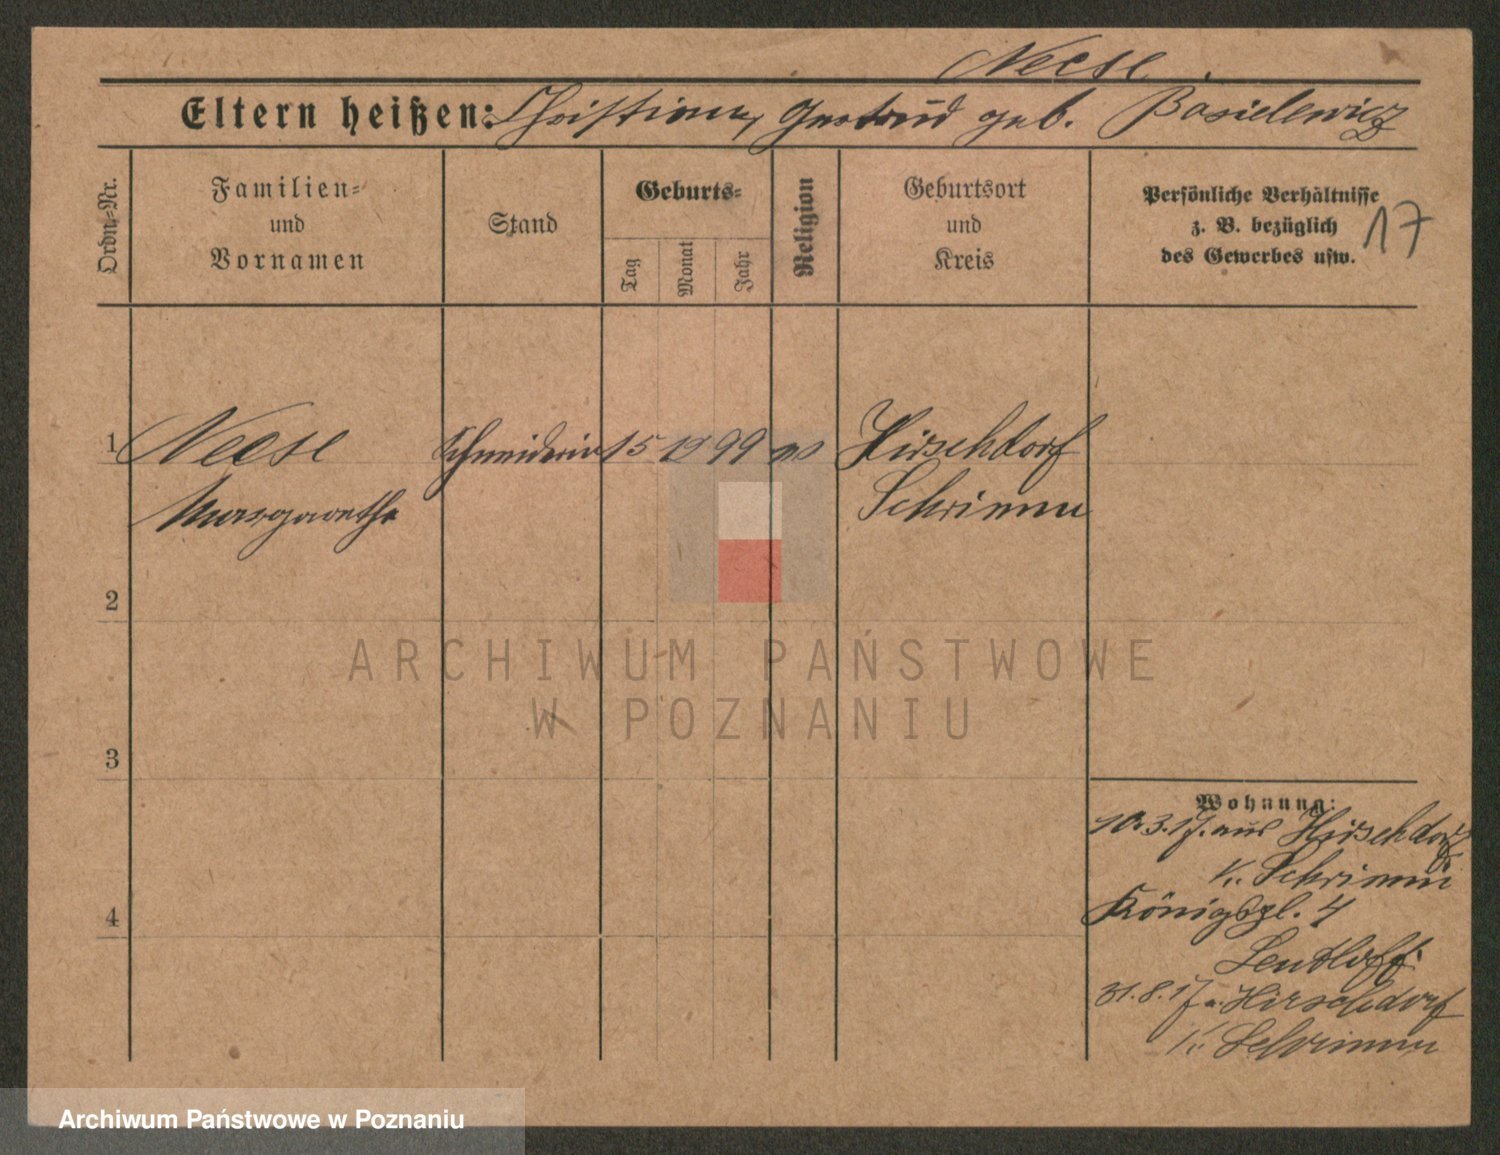 Neese.
Eltern heißen: Christian, Gertrud geb. Basielewicz
Ordn.-Nr.
Familien-
und
Vornamen
Stand
Geburts-
Tag
Monat
Jahr
Religion
Geburtsort
und
Kreis
Persönliche Verhältnisse
z. B. bezüglich
des Gewerbes usw.
17
1 Neese Schneiderin 15 12 99 Hirschdorf
Margarethe Schrimm
2
ARCHIWUM PAŃSTWOWE
W POZNANIU
3
Wohnung:
10.3.17. aus Hirschdorf
K. Schrimm
4
Königspl. 4
31.8.17 n. Hirschdorf
K. Schrimm
Archiwum Państwowe w Poznaniu